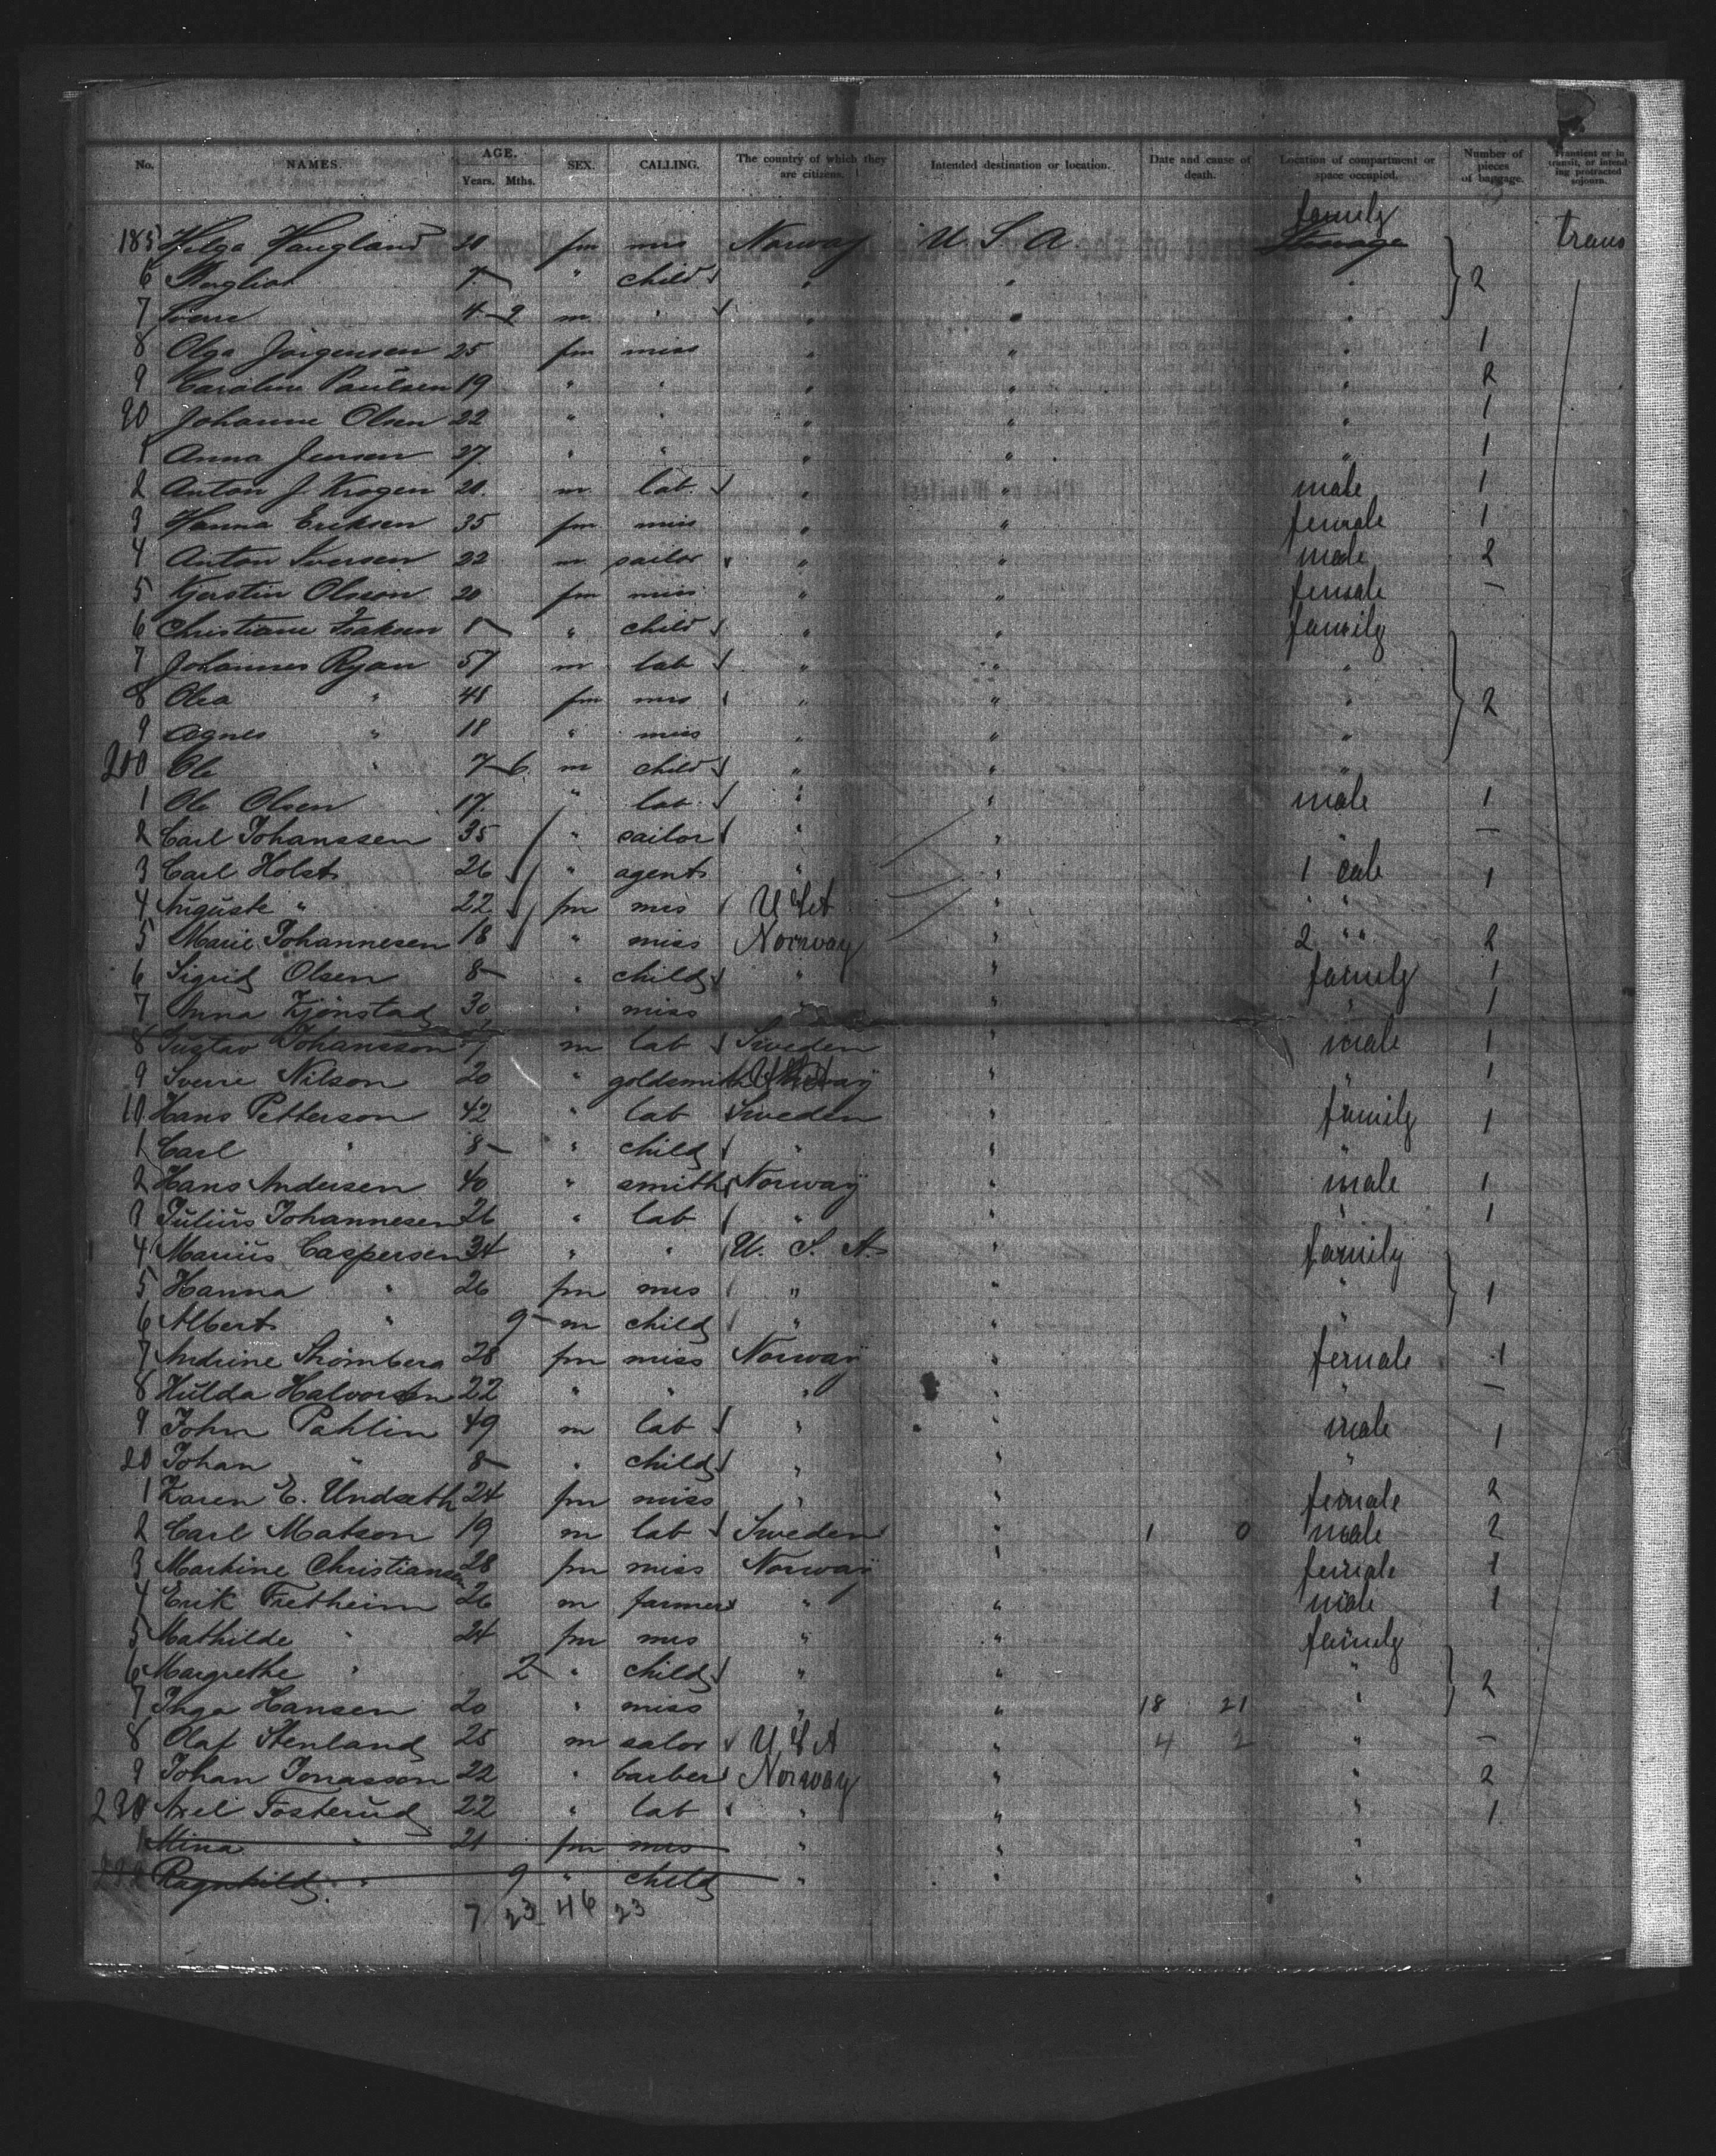 No. NAMES. AGE. Years. Mths. SEX. CALLING. The country of which they are citizens. Intended destination or location. Date and cause of death. Location of compartment or space occupied. Number of pieces of baggage. Transient or in transit, or intending protracted sojourn.
family
185 Helga Haugland 20 fm mrs Norway U. S. A. Steerage trans
6 7 " child " " " 2
7 Sverre 4 2 m " " " "
8 Olga Jorgensen 25 fm miss " " " 1
9 Caroline Paulsen 19 " " " " " 2
90 Johanne Olsen 22 " " " " " 1
1 Anna Jensen 27 " " " " " 1
2 Anton J. Krogen 20. m lab. " " male 1
3 Hanna Eriksen 35 fm miss " " female 1
4 Anton Iversen 22 m sailor " " male 2
5 Kjerstin Olsson 20 fm miss " " female –
6 Christiane Isaksen 8 " child " " family
7 Johannes Ryan 57 m lab " " "
8 Olea " 48 fm mrs " " " 2
9 Agnes " 18 " miss " " "
200 Ole " 7 6 m child " " "
1 Ole Olsen 17. " lab " " male 1
2 Carl Johanssen 35 " sailor " " " –
3 Carl Holst 26 " agent " " 1 cab 1
4 Auguste " 22 fm mrs U S A " " "
5 Marie Johannesen 18 " miss Norway " 2 " " 2
6 Sigrid Olsen 8 " child " " family 1
7 Anna Kjönstad 30 " miss " " " 1
8 Gustav Johansson m lab Sweden " male 1
9 Sverre Nilson 20 " goldsmith " " 1
10 Hans Petterson 42 " lab Sweden " family 1
1 Carl " 8 " child " "
2 Hans Andersen 40 " smith Norway " male 1
3 Julius Johannesen 26 " lab " " " 1
4 Marius Caspersen 34 " " U. S. A. " family
5 Hanna " 26 fm mrs " " " 1
6 Albert " 9 m child " " "
7 Andrine Strömberg 28 fm miss Norway " female 1
8 Hulda Halvorsen 22 " " " " " –
9 John Pahlin 49 m lab " " male 1
20 Johan " 8 " child " " "
1 Karen E. Undseth 24 fm miss " " female 2
2 Carl Matson 19 m lab Sweden " 1 0 male 2
3 Martine Christiansen 28 fm miss Norway " female 1
4 Erik Fretheim 26 m farmer " " male 1
5 Mathilde " 24 fm mrs " " family
6 Margrethe " 2 " child " " " 2
7 Inga Hansen 20 " miss " " 18 21 "
8 Olaf Stenland 25 m salor U S A " 4 2 " –
9 Johan Jonasson 22 " barber Norway " " 2
230 Axel Fosterud 22 " lab " " " 1
1 Mina " 21 fm mrs " " "
232 Ragnhild " 9 " child " " "
7 23 46 23